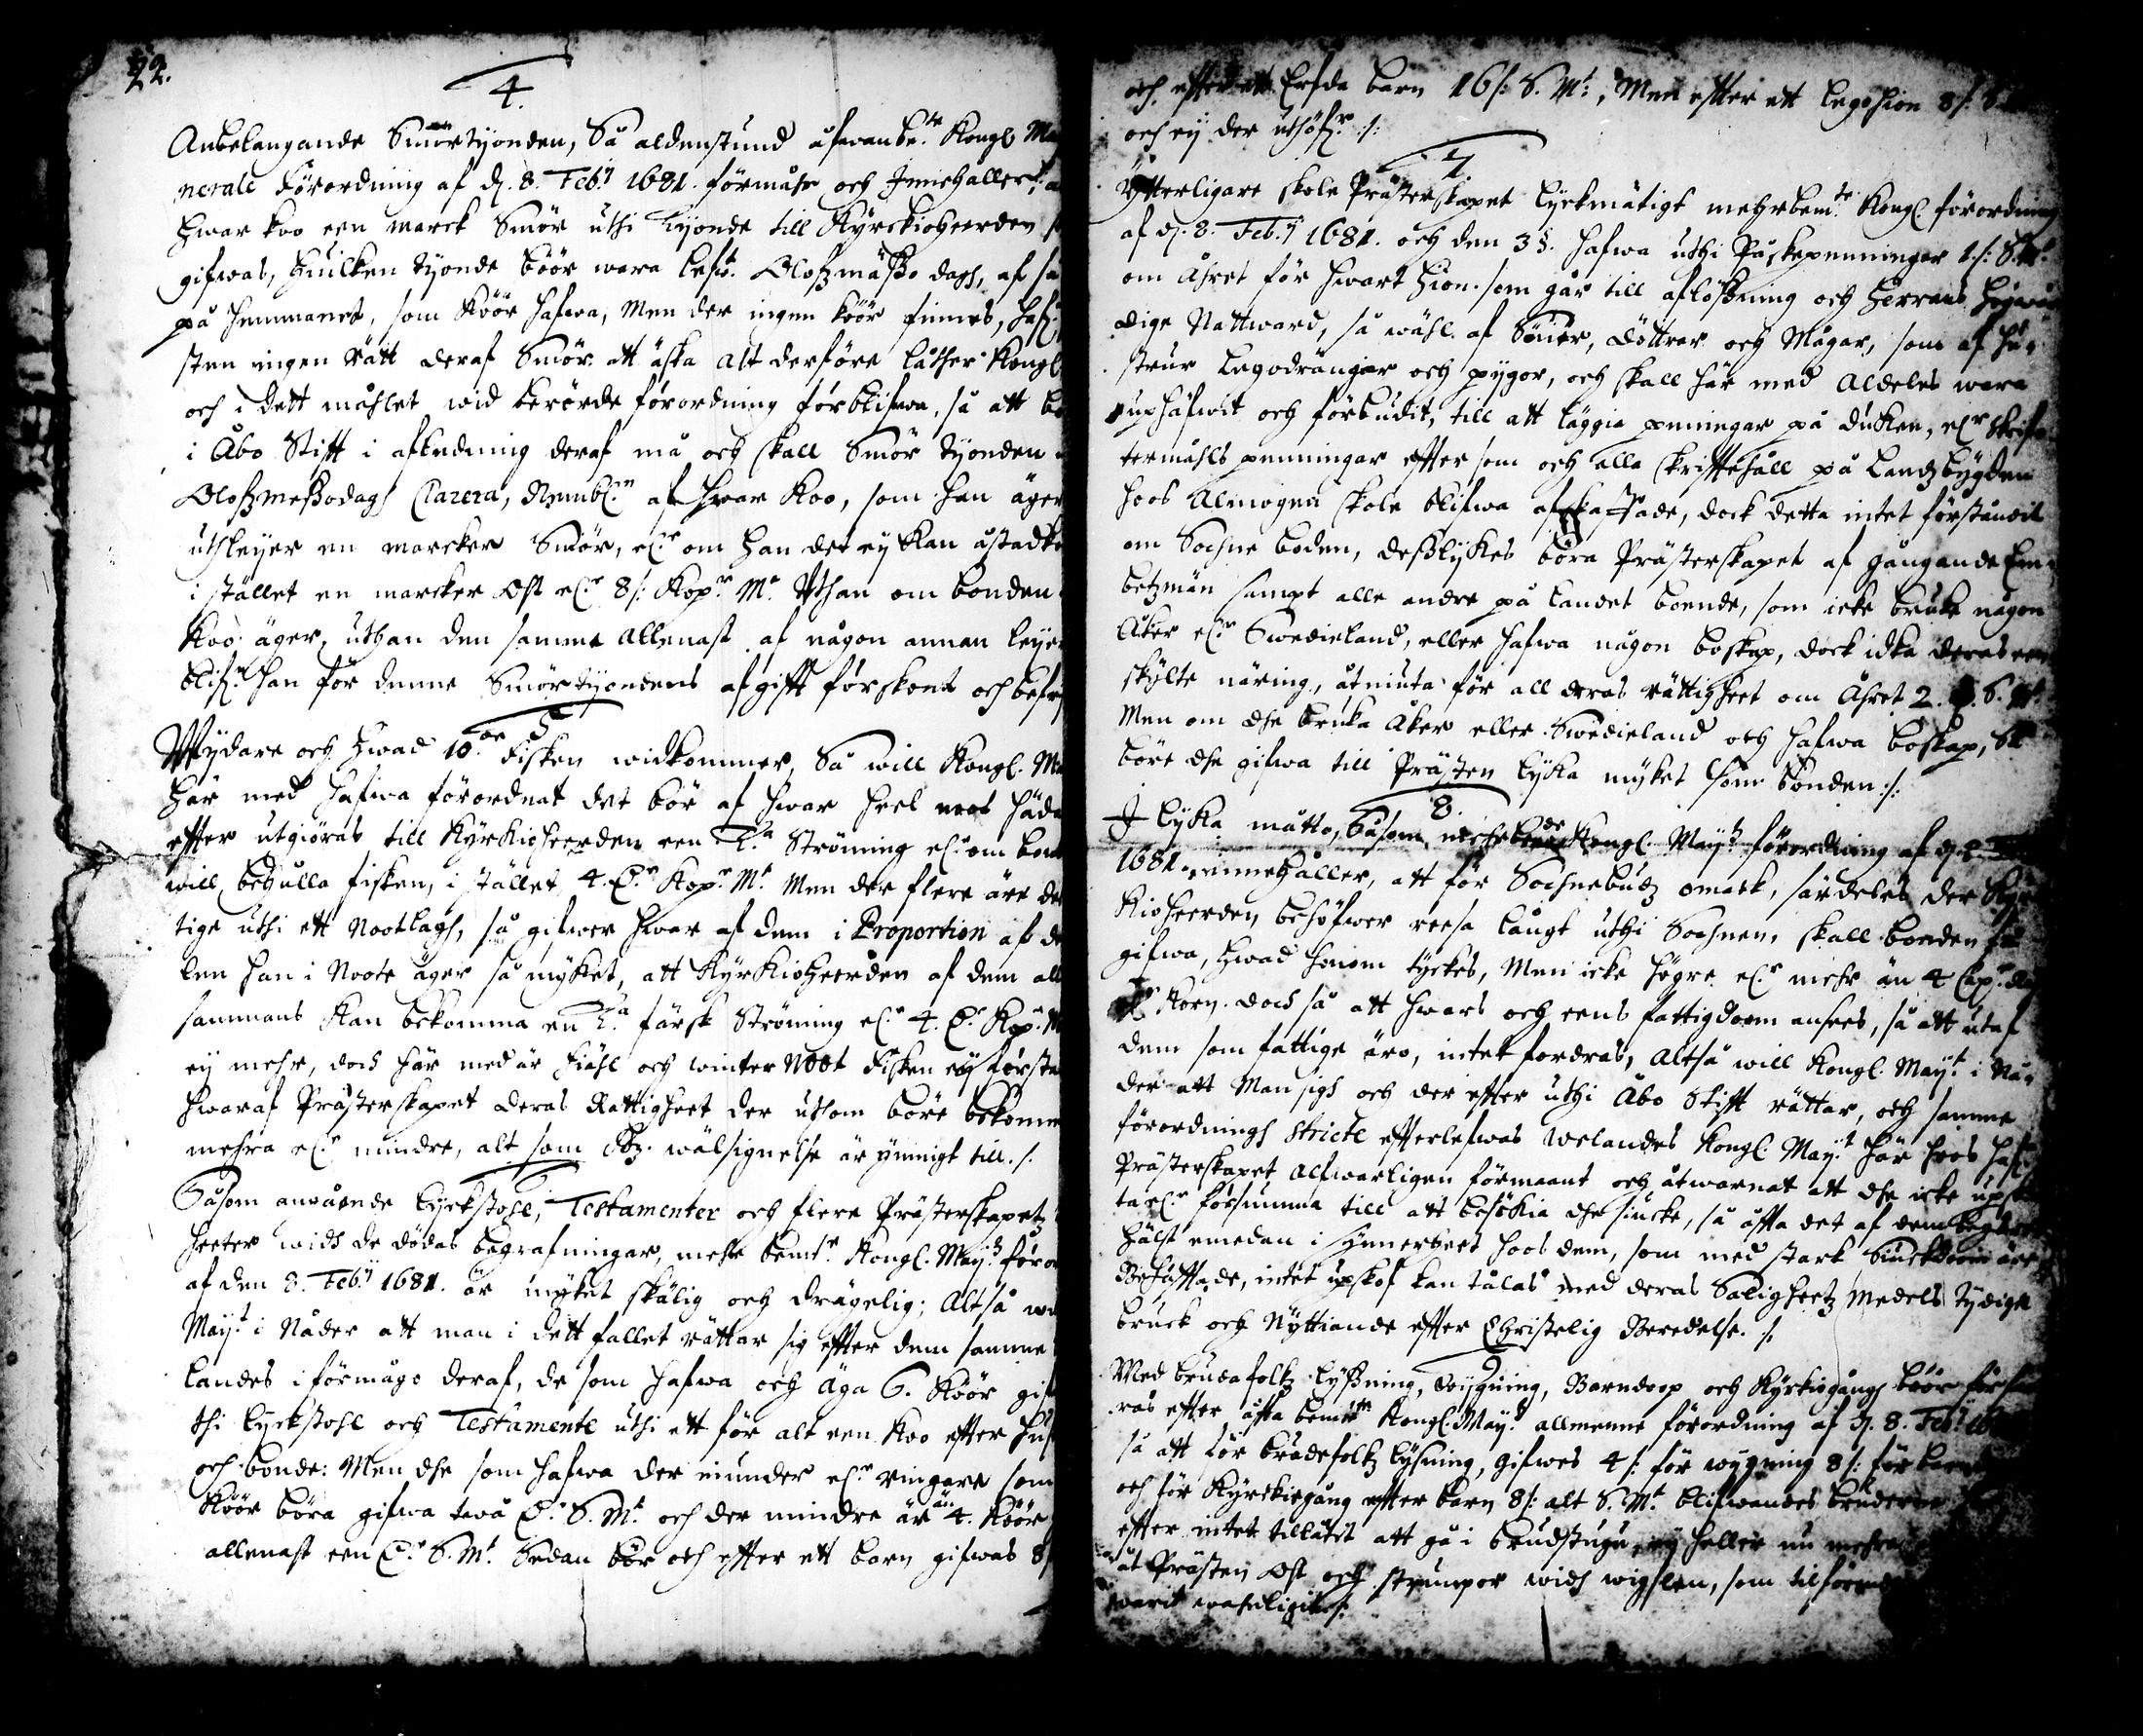 22.
4.
Anbelangande Smörtyonden, Så aldenstund åfwanbe:te Kongl. Ma
nerale Förordning af d. 8. Feb:ij 1681. förmåhr och Innehaller
hwar koo een marck Smör uthi Tyonde till Kyrckioheerden
gifwas, huilken tyonde böör wara lefw:t Olofzmässo dagh, af
på hemmanet, som Köör hafwa, Men der ingen köör finnes, haf
sten ingen rätt deraf Smör att äska alt derföre låther Kongl.
och i dett måhlet wid berörde förordning förblifwa, så att bo
i Åbo Stifft i afledning deraf må och skall Smör tyonden
Olofzmessodagh Clarera, Nembl:n af hwar Koo, som han äger
uthleyer en marcker Smör, el:r om han det ey kan åstadko
i stället en marcker Ost el:r 8/: Kop:r M:t Uthan om bonden
Koo äger, uthan den samme allenast af någon annan leyer
blif:r han för denne Smörtyondens afgifft förskont och befry
5
Wydare och hwad 10:de Fisken widkommer, Så will Kongl. Ma
här med hafwa förordnat det bör af hwar heel noot häda
effter utgiöras till Kyrkioheerden een T:a Ströming el:r om bon
will behålla fisken, i stället 4. D:r Kop:r M:t Men der flere äre de
tige uthi ett Nootlagh, så gifwer hwar af dem i Proportion af de
len han i Noote äger så myket, att Kyrkioheerden af dem all
sammans kan bekomma en T:a färsk Ströming el:r 4. D:r Kop:r M
ey mehr, doch här med är Siähl och winter Noot Fisken ey första
hwaraf Prästerskapet deras Rättigheet der uthom böre bekomm
mehra el:r mindre, alt som Gudz wälsignelse är ymnigt till./.
6
Såsom angående Lyckstohl, Testamenter och flere Prästerskapetz
heeter widh de dödas begrafningar, mehr bem:te Kongl. May:tz föror
af den 8. Feb:ij 1681. är myket skälig och drägelig; Altså wi
May:t i Nåder att man i dett fallet rättar sig effter dem samme
landes i förmågo deraf, de som hafwa och äga 6. Köör gif
thi Lyckstohl och Testamente uthi ett för alt een Koo effter hus
och bonde: Men dhe som hafwa der munder el:r ringare som
Köör böra gifwa twå D:r S. M:t och der mindre är än 4. Köör
allenast een D:r S. M:t Sedan bör och effter ett barn gifwas 8/
och effter ett Erfda barn 16/: S. M:t, Men effter ett legohion 8/: S.
och ey der uthöf:r :/:
7
Ytterligare skole Prästerskapet lyckmätigt mehrbem:te Kongl. förordning
af d. 8. Feb:ij 1681. och den 3 §. hafwa uthi Påskepenningar 1./: S. M:t
om Åhret för hwart hion som går till aflössning och Herrans Högwär-
dige Nattward, så wähl af Söner, döttrar och Mågar, som af hu-
strur legodrängar och pygor, och skall här med aldeles wara
uphäfwit och förbudit, till att läggia penningar på duken, el:r skrif-
termåhls penningar effter som och alla skrifftehåll på landzbygden
hoos Almogen skole blifwa afskaffade, dock detta intet förståndit
om Sochne boden, desslykes böra Prästerskapet af gångande Em-
betzmän sampt alle andre på landet boende, som icke bruka någon
Åker el:r Swedieland, eller hafwa någon boskap, dock idka deras en
skylte näring, åtniuta för all deras rättigheet om Åhret 2. S. M:t
Men om dhe bruka åker eller Swedieland och hafwa boskap, Så
böre dhe gifwa till Prästen lyka myket som Bonden:/:
8.
I lyka måtto, såsom mehrbem:de Kongl. May:tz förordning af d. 8.
1681. innehåller, att för Sochnebudz omack, särdeles der Kyr
kioheerden behöfwer reesa långt uthi Sochnen, skall bonden
gifwa, hwad honom tyckes, Men icke högre el:r mehr än 4 Cap:r
Korn. doch så att hwars och eens fattigdoom ansees, så att utaf
dem som fattige äro, intet fordras, Altså will Kongl. May:t i Nå-
der att Man sigh och der effter uthi Åbo Stifft rättar, och samme
förordningh stricte effterlefwas welandes Kongl. May:t här hoos haf
Prästerskapet alfwarligen förmaant och åtwarnat att dhe icke upsk
ta el:r försumma till att besökia dhe siucke, så offta det af dem begä
hälst emedan i Synnerheet hoos dem, som med stark Siuckdoom äre
Behäfftade, intet upskof kan tålas med deras Saligheetz Medels tydige
bruck och Nyttiande effter Christelig Beredelse. /.
9
Med brudafolkz Lyssning, wygning, Barndoop och Kyrkiogångh böör för
ras effter offta bem:te Kongl. May:tz allmenne förordning af d. 8. Feb:ij 16
så att för brudefolkz lysning, gifwes 4/: för wygning 8/: för barn
och för Kyrckiegång effter barn 8/: alt S. M:t blifwandes
effter intet tillåtit att gå i brudstugu, ey heller nu mehra
åt Prästen Ost och strumpor widh wigslen, som tilförend
warit wahnligit:/: